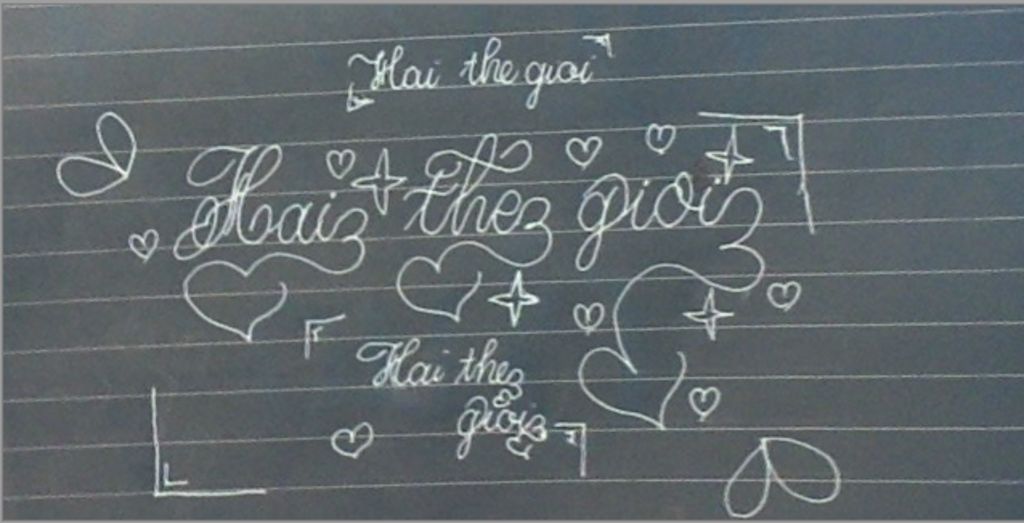 Hai the gioi
Hai the gioi
Hai the
gioi